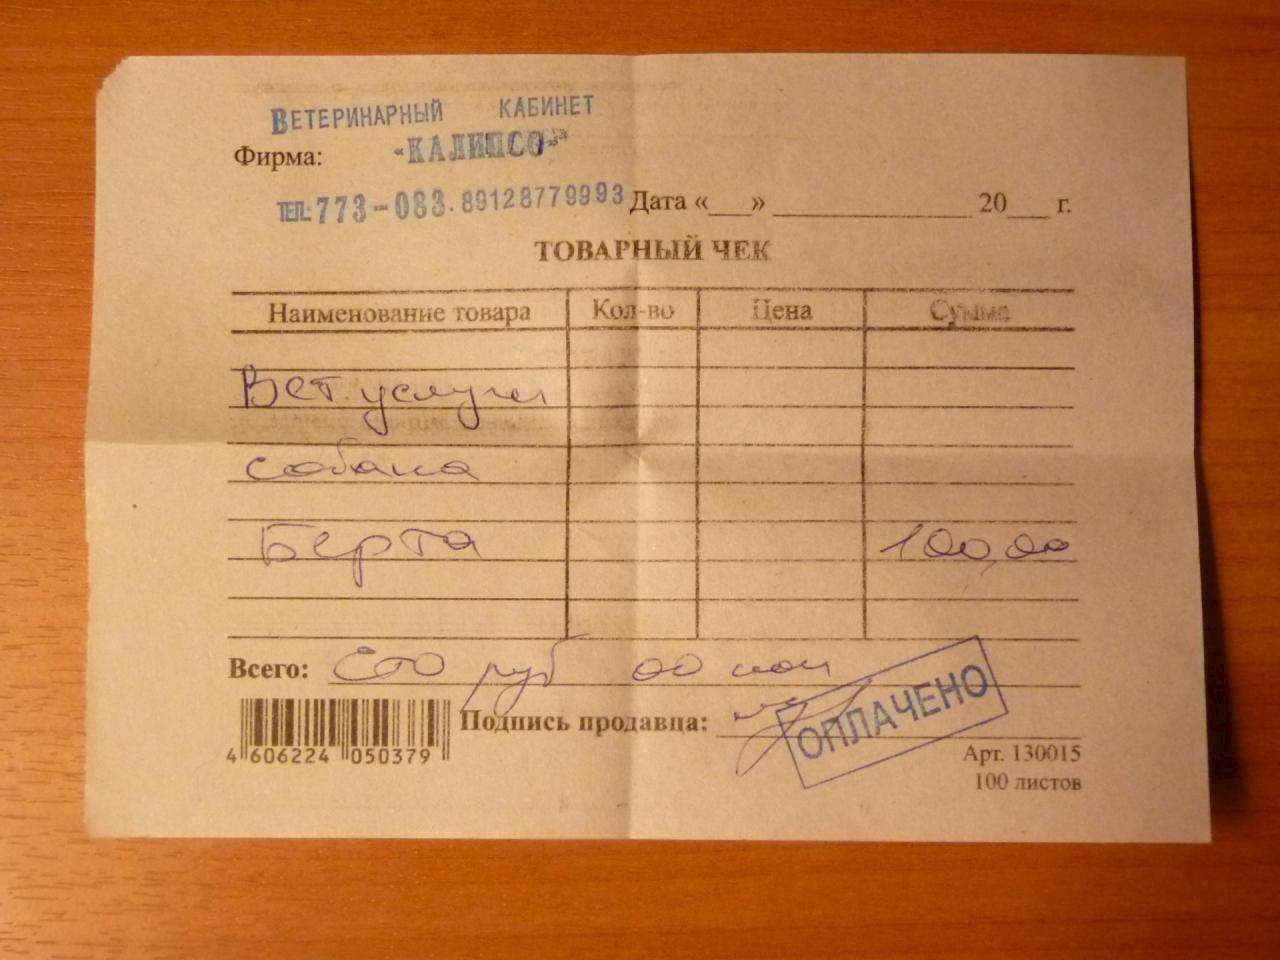 ВЕТЕРИНАРНЫЙ КАБИНЕТ
Фирма: «КАЛИПСО»
ТЕЛ: 773-083. 89128779993 Дата «___» _______________ 20___ г.
ТОВАРНЫЙ ЧЕК
Наименование товара Кол-во Цена Сумма
Вет. услуги
собака
Берта 100,00
Всего: Сто руб 00 коп
Подпись продавца:
ОПЛАЧЕНО
4 606224 050379
Арт. 130015
100 листов